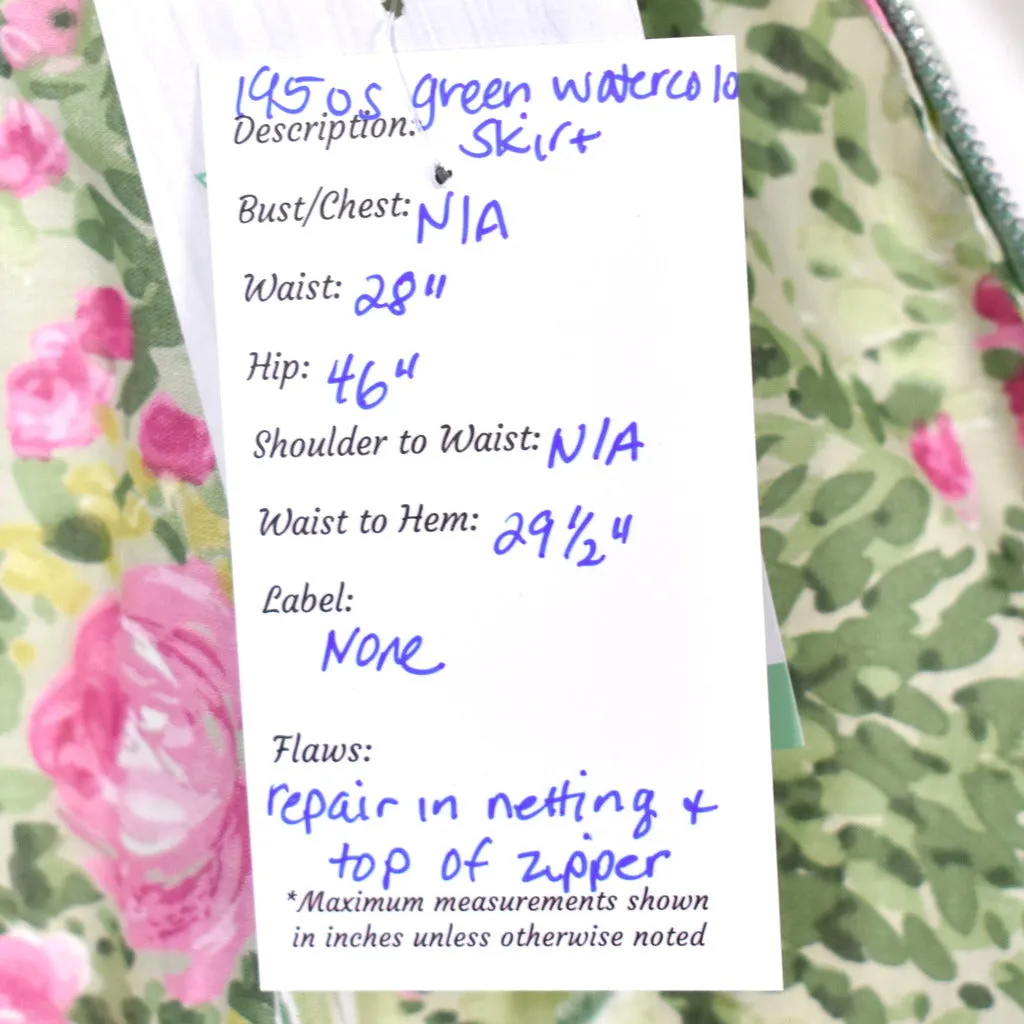 1950s green watercolo
Description: skirt
Bust/Chest: N/A
Waist: 28"
Hip: 46"
Shoulder to Waist: N/A
Waist to Hem: 29 1/2"
Label:
None
Flaws:
repair in netting +
top of zipper
*Maximum measurements shown
in inches unless otherwise noted